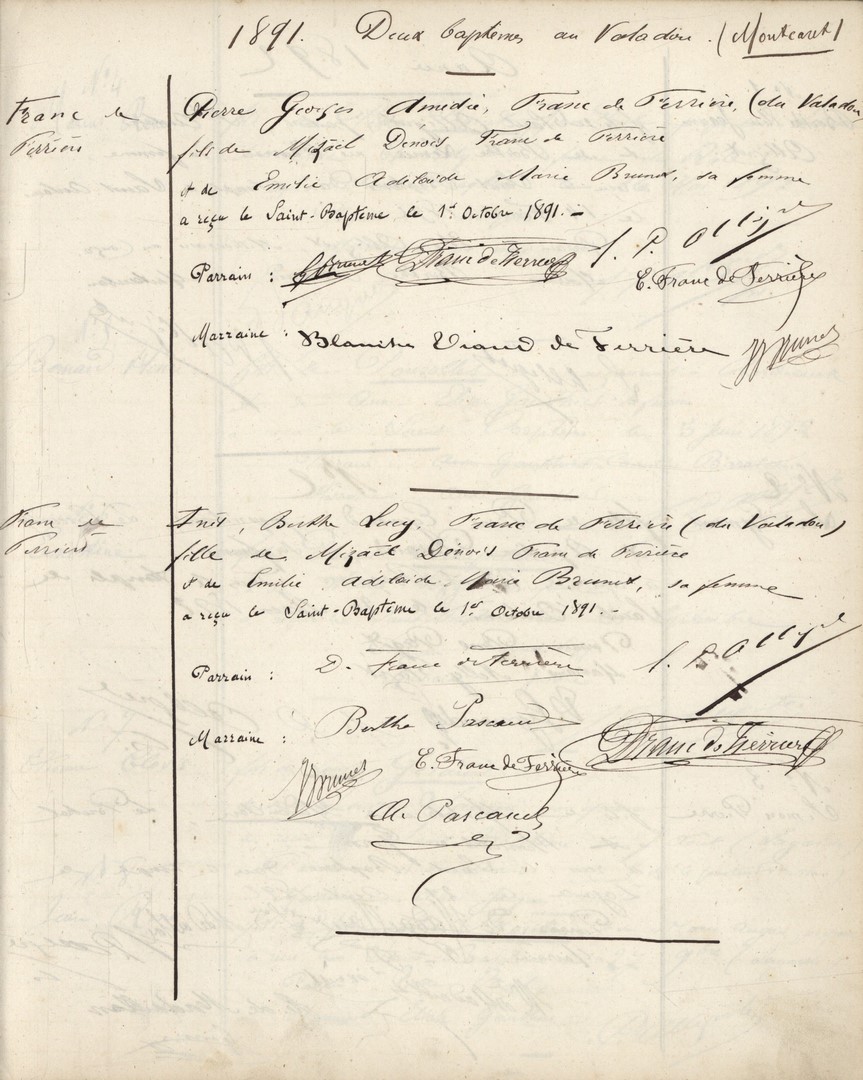 1891. Deux baptêmes au Valadou. (Montcaret)
Franc de Ferrière
Pierre Georges Amédée, Franc de Ferrière, (du Valadou
fils de Mizaël Dénois Franc de Ferrière
et de Emilie Adélaïde Marie Brunet, sa femme
a reçu le Saint-Baptême le 1er Octobre 1891. -
Parrain : Brunet Franc de Ferrière
E. Franc de Ferrière
Marraine : Blanche Viaud de Ferrière Brunet
Franc de Ferrière
Inès, Berthe Lucy, Franc de Ferrière (du Valadou)
fille de Mizaël Dénois Franc de Ferrière
et de Emilie Adélaïde Marie Brunet, sa femme
a reçu le Saint-Baptême le 1er Octobre 1891. -
Parrain : D. Franc de Ferrière
Marraine : Berthe Pascaud Franc de Ferrière
Brunet E. Franc de Ferrière
Pascaud